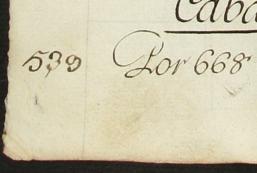 Caba
539 Por 668